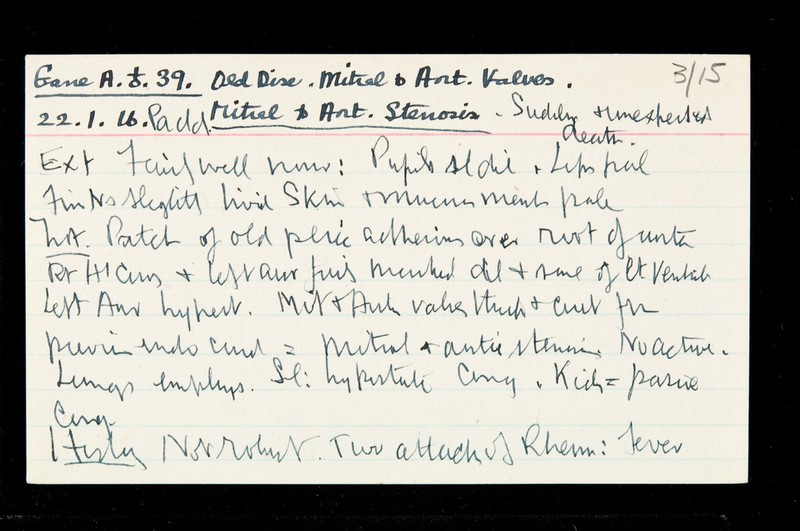 Gane A. J. 39. Old Dise. Mitral & Aort. Valves. 3/15
22.1.16. Padd. Mitral & Aort. Stenosis. Suddn & unexpected
death.
Ext Fairly well nour: Pupils sl dil. Lips pale
slightly livid Skin & mucus memb pale
Hrt. Patch of old peric adhesions over root of aorta
Rt Ht Cavs & left aur fairly marked dil & some of Lt Ventricle
Left Aur hypert. Mit & Aort valves thick & cont fr
previous endo card = mitral & aortic stenosis No active.
Lungs emphys. Sl: hypostatic Cong. Kids = passive
Cong.
History Not robust. Two attacks of Rheum: fever